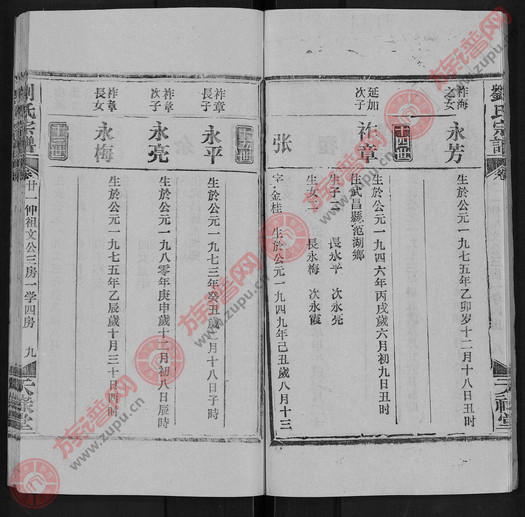 劉氏宗譜
卷
祚海
之女
永芳
生於公元一九七五年乙卯岁十二月十八日丑时
十四世
延加
次子
祚章
生於公元一九四六年丙戌歲六月初九日丑时
住武昌縣范湖鄉
生子二 長永平 次永亮
生女二 長永梅 次永霞
张
字金桂 生於公元一九四九年己丑歲八月十三
十五世
祚章
長子
永平
生於公元一九七三年癸丑歲二月十八日子时
祚章
次子
永亮
生於公元一九八零年庚申歲十二月初八日辰時
祚章
長女
永梅
生於公元一九七五年乙辰歲十月三十日酉时
十五世
劉氏宗譜
卷
廿一仲祖文公三房一学四房
九
族谱网
www.zupu.cn